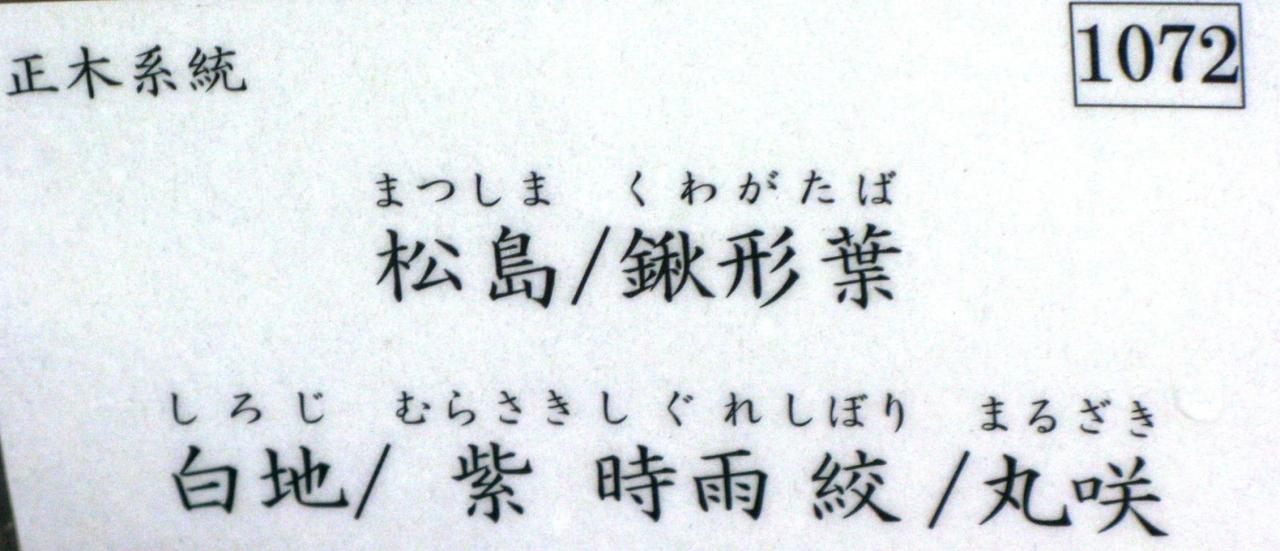 正木系統 1072
まつしま くわがたば
松島/鍬形葉
しろじ むらさきしぐれしぼり まるざき
白地/紫 時雨 絞/丸咲